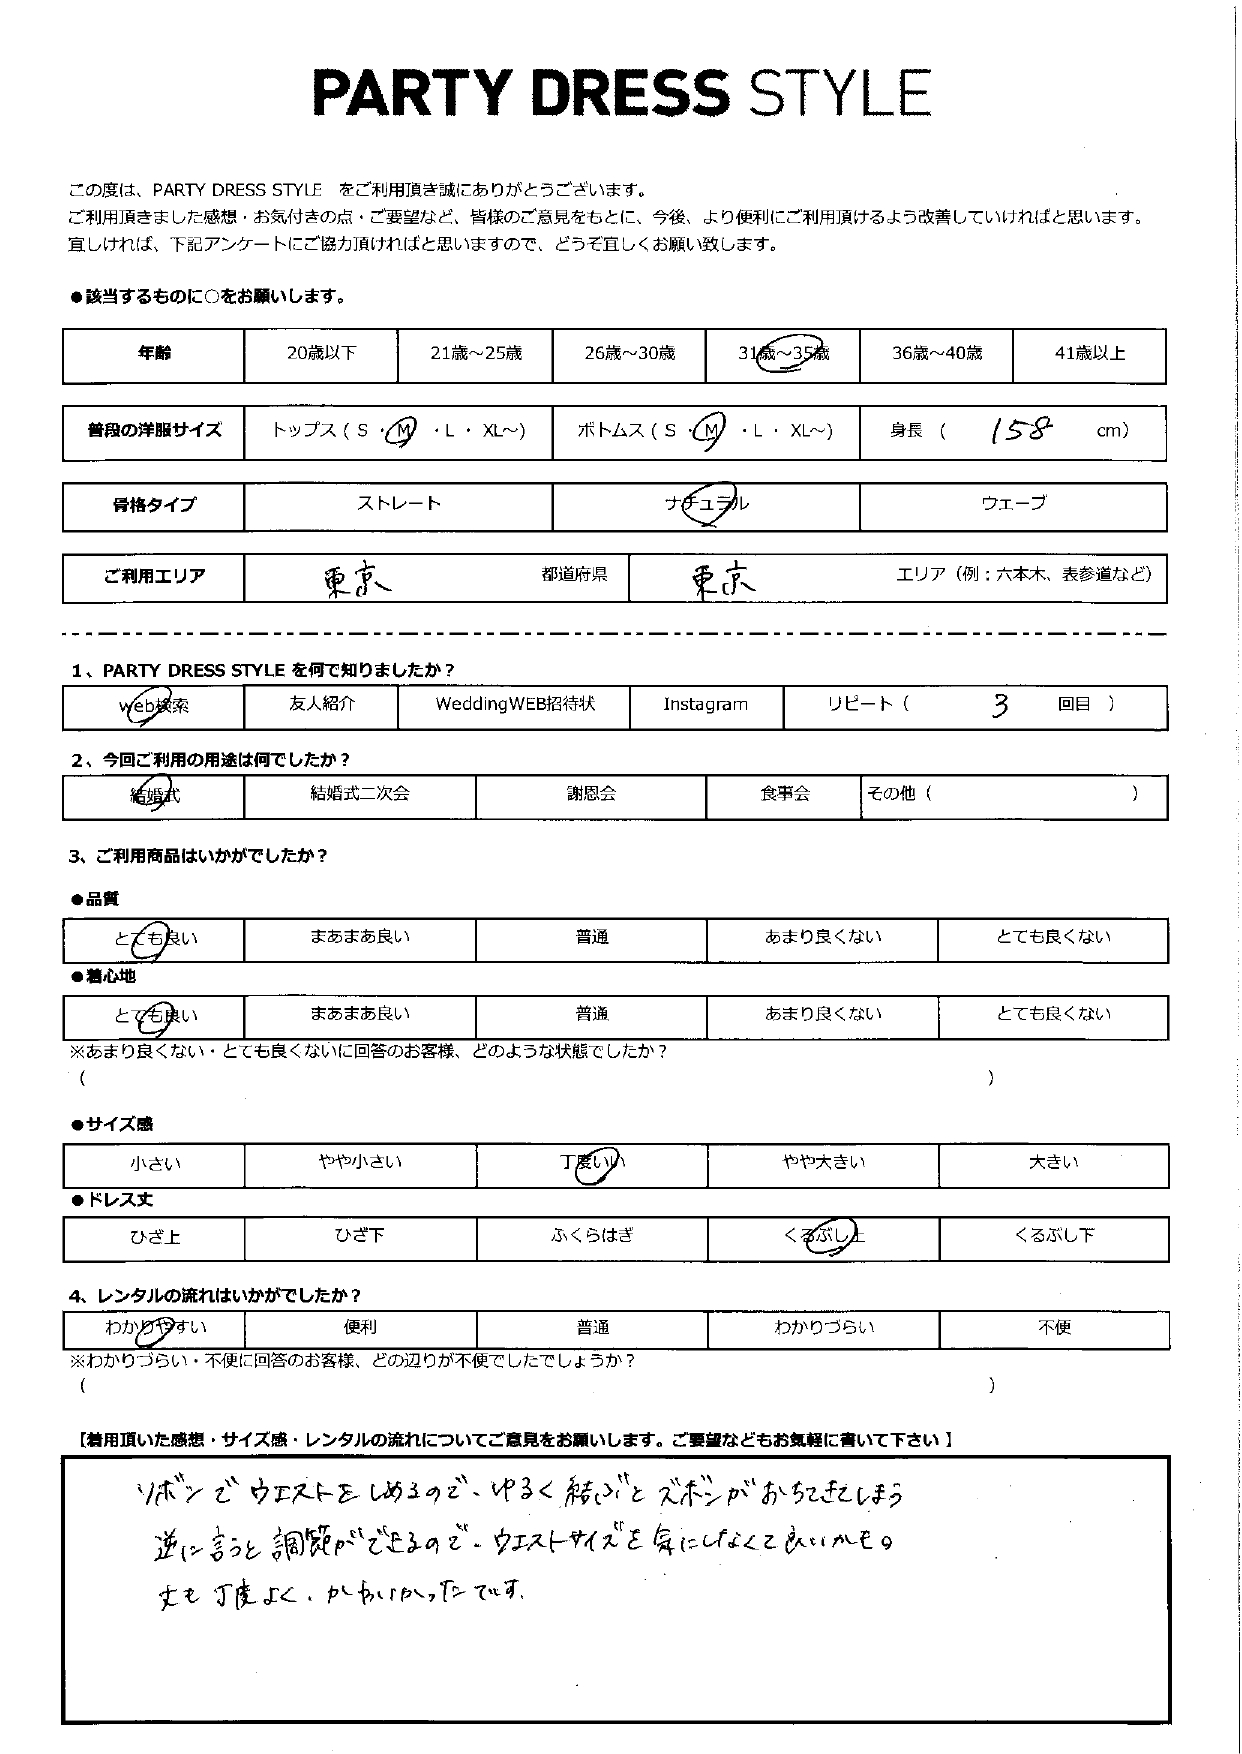 PARTY DRESS STYLE
この度は、PARTY DRESS STYLE をご利用頂き誠にありがとうございます。
ご利用頂きました感想・お気付きの点・ご要望など、皆様のご意見をもとに、今後、より便利にご利用頂けるよう改善していければと思います。
宜しければ、下記アンケートにご協力頂ければと思いますので、どうぞ宜しくお願い致します。
●該当するものに○をお願いします。
年齢 20歳以下 21歳～25歳 26歳～30歳 31歳～35歳 36歳～40歳 41歳以上
普段の洋服サイズ トップス ( S ・ M ・ L ・ XL～) ボトムス ( S ・ M ・ L ・ XL～) 身長 ( 158 cm)
骨格タイプ ストレート ナチュラル ウェーブ
ご利用エリア 東京 都道府県 東京 エリア（例：六本木、表参道など）
1、PARTY DRESS STYLE を何で知りましたか？
web検索 友人紹介 WeddingWEB招待状 Instagram リピート（ 3 回目 ）
2、今回ご利用の用途は何でしたか？
結婚式 結婚式二次会 謝恩会 食事会 その他（ ）
3、ご利用商品はいかがでしたか？
●品質
とても良い まあまあ良い 普通 あまり良くない とても良くない
●着心地
とても良い まあまあ良い 普通 あまり良くない とても良くない
※あまり良くない・とても良くないに回答のお客様、どのような状態でしたか？
（ ）
●サイズ感
小さい やや小さい 丁度いい やや大きい 大きい
●ドレス丈
ひざ上 ひざ下 ふくらはぎ くるぶし上 くるぶし下
4、レンタルの流れはいかがでしたか？
わかりやすい 便利 普通 わかりづらい 不便
※わかりづらい・不便に回答のお客様、どの辺りが不便でしたでしょうか？
（ ）
【着用頂いた感想・サイズ感・レンタルの流れについてご意見をお願いします。ご要望などもお気軽に書いて下さい】
リボンでウエストをしめるので、ゆるく結ぶとズボンがおちてきてしまう
逆に言うと調節ができるので、ウエストサイズを気にしなくて良いかも。
丈も丁度よく、かわいかったです。